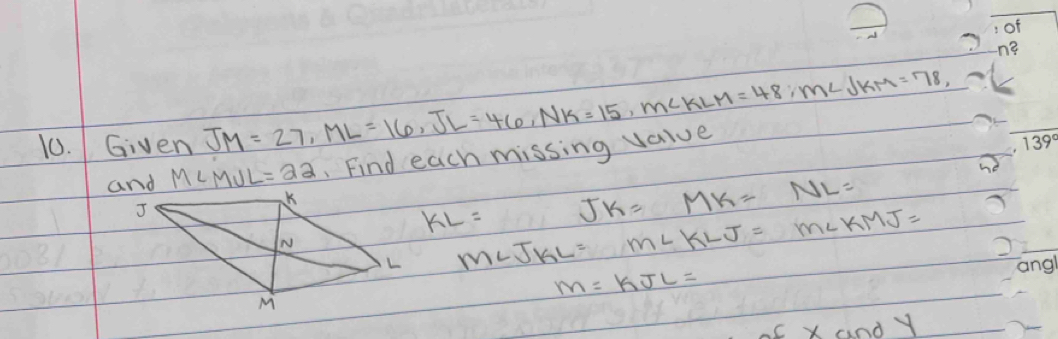 : of
n?
10. Given JM = 27, ML = 16, JL = 46, NK = 15, m<KLM = 48, m∠JKM = 78,
and M∠MJL = 22. Find each missing value
139°
J K
N
L
M
KL = JK = MK = NL =
m∠JKL = m∠KLJ = m∠KMJ =
m = KJL =
angl
of X and Y